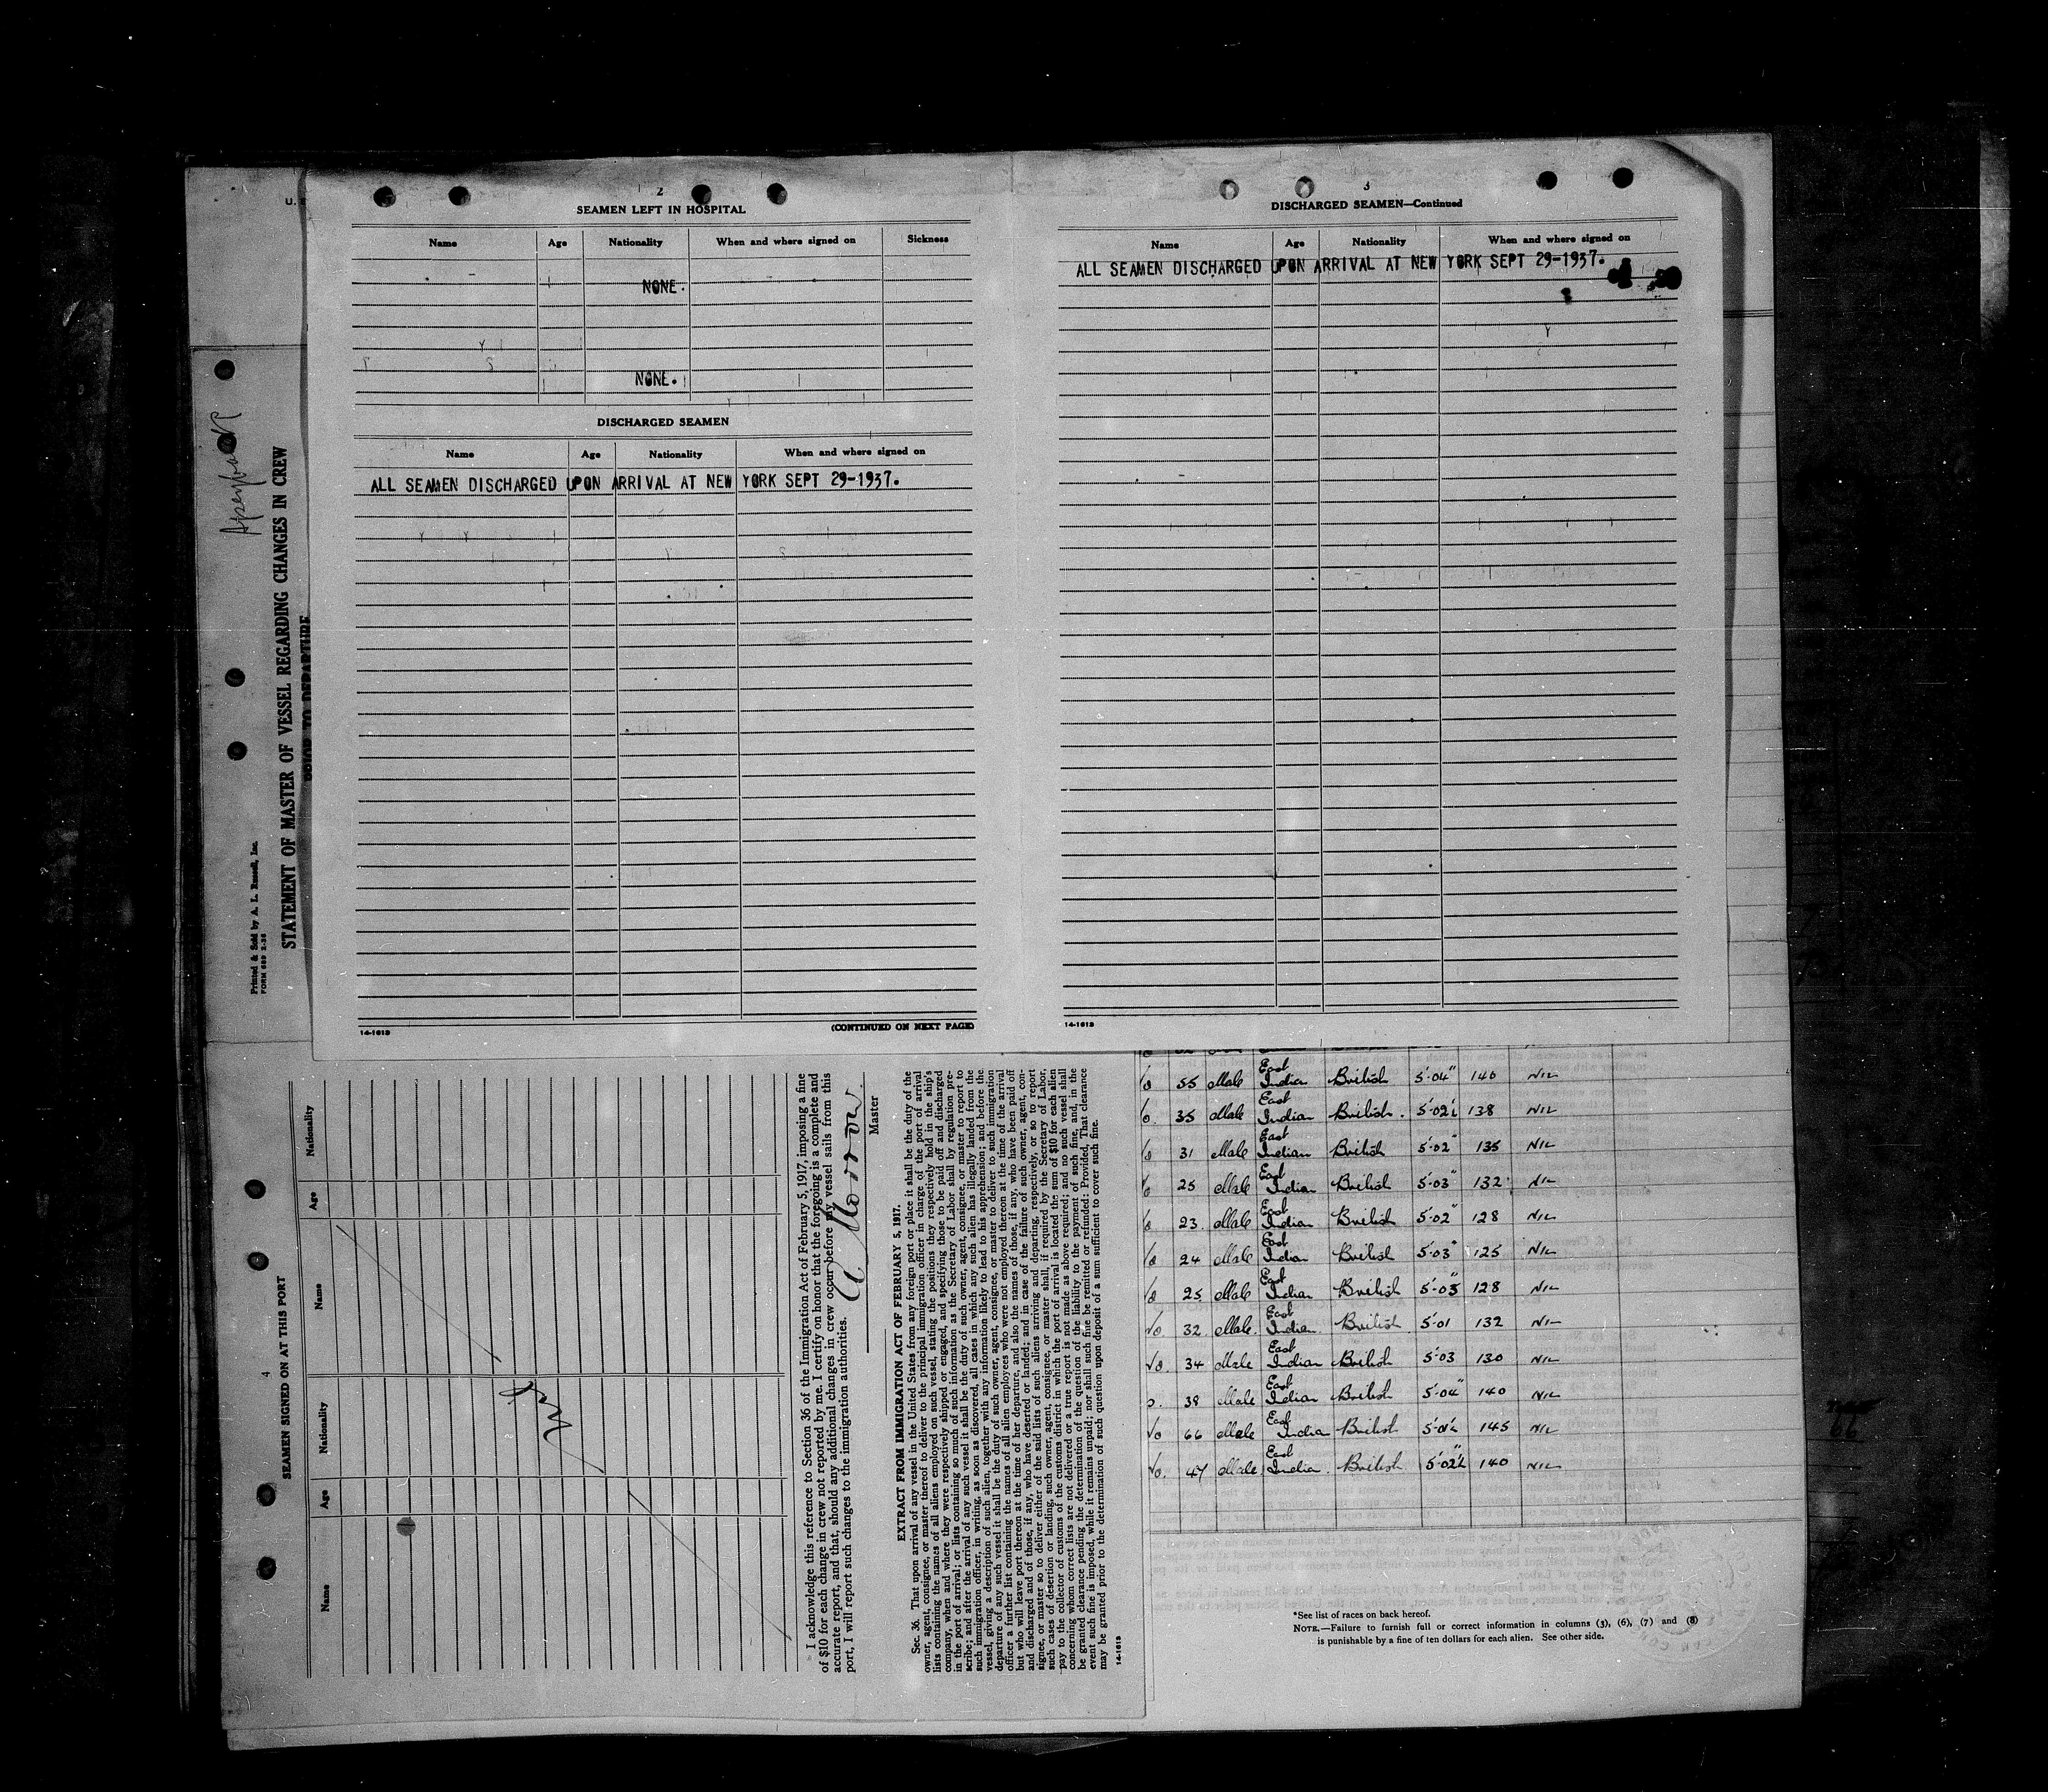 2
SEAMEN LEFT IN HOSPITAL
Name Age Nationality When and where signed on Sickness
NONE.
NONE.
DISCHARGED SEAMEN
Name Age Nationality When and where signed on
ALL SEAMEN DISCHARGED UPON ARRIVAL AT NEW YORK SEPT 29-1937.
14-1613
(CONTINUED ON NEXT PAGE)
3
DISCHARGED SEAMEN—Continued
Name Age Nationality When and where signed on
ALL SEAMEN DISCHARGED UPON ARRIVAL AT NEW YORK SEPT 29-1937.
14-1613
Printed & Sold by A. L. Russell, Inc.
FORM 689 2-36
STATEMENT OF MASTER OF VESSEL REGARDING CHANGES IN CREW
PRIOR TO DEPARTURE
4
SEAMEN SIGNED ON AT THIS PORT
Name Age Nationality Name Age Nationality
I acknowledge this reference to Section 36 of the Immigration Act of February 5, 1917, imposing a fine
of $10 for each change in crew not reported by me. I certify on honor that the foregoing is a complete and
accurate report, and that, should any additional changes in crew occur before my vessel sails from this
port, I will report such changes to the immigration authorities.
Master
EXTRACT FROM IMMIGRATION ACT OF FEBRUARY 5, 1917.
Sec. 36. That upon arrival of any vessel in the United States from any foreign port or place it shall be the duty of the
owner, agent, consignee, or master thereof to deliver to the principal immigration officer in charge of the port of arrival
lists containing the names of all aliens employed on such vessel, stating the positions they respectively hold in the ship's
company, when and where they were respectively shipped or engaged, and specifying those to be paid off and discharged
in the port of arrival; or lists containing so much of such information as the Secretary of Labor shall by regulation pre-
scribe; and after the arrival of any such vessel it shall be the duty of such owner, agent, consignee, or master to report to
such immigration officer, in writing, as soon as discovered, all cases in which any such alien has illegally landed from the
vessel, giving a description of such alien, together with any information likely to lead to his apprehension; and before the
departure of any such vessel it shall be the duty of such owner, agent, consignee, or master to deliver to such immigration
officer a further list containing the names of all alien employees who were not employed thereon at the time of the arrival
but who will leave port thereon at the time of her departure, and also the names of those, if any, who have been paid off
and discharged and of those, if any, who have deserted or landed; and in case of the failure of such owner, agent, con-
signee, or master so to deliver either of the said lists of such aliens arriving and departing, respectively, or so to report
such cases of desertion or landing, such owner, agent, consignee, or master shall, if required by the Secretary of Labor,
pay to the collector of customs of the customs district in which the port of arrival is located the sum of $10 for each alien
concerning whom correct lists are not delivered or a true report is not made as above required; and no such vessel shall
be granted clearance pending the determination of the question of the liability to the payment of such fine, and, in the
event such fine is imposed, while it remains unpaid; nor shall such fine be remitted or refunded: Provided, That clearance
may be granted prior to the determination of such question upon deposit of a sum sufficient to cover such fine.
14-1613
55 Male East Indian British 5'-04" 140 NIL
35 Male East Indian British 5'-02½ 138 NIL
31 Male East Indian British 5'-02" 135 NIL
25 Male East Indian British 5'-03" 132 NIL
23 Male East Indian British 5'-02" 128 NIL
24 Male East Indian British 5'-03" 125 NIL
25 Male East Indian British 5'-03" 128 NIL
32 Male East Indian British 5'-01 132 NIL
34 Male East Indian British 5'-03 130 NIL
38 Male East Indian British 5'-04" 140 NIL
66 Male East Indian British 145 NIL
47 Male East Indian British 5'-02½" 140 NIL
*See list of races on back hereof.
NOTE.—Failure to furnish full or correct information in columns (3), (6), (7) and (8)
is punishable by a fine of ten dollars for each alien. See other side.